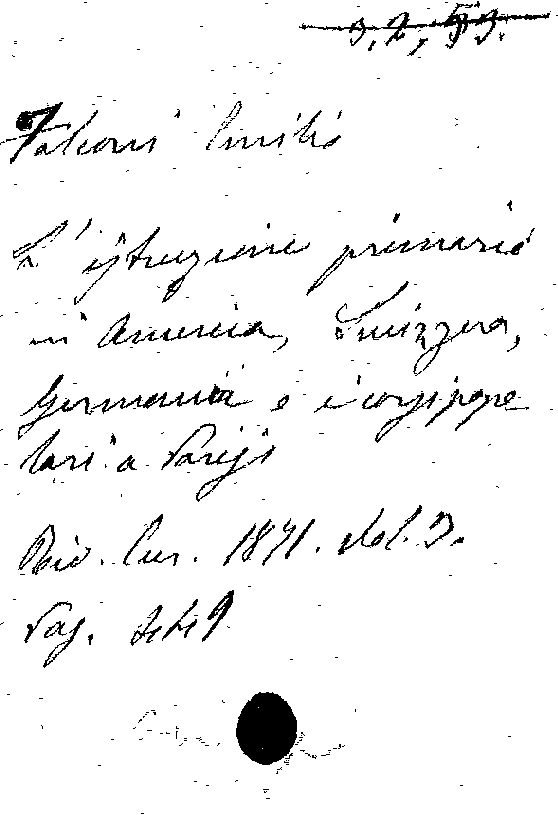 3.2.53.
Falconi Emilio
L'istruzione primaria
in America, Svizzera,
Germania e i corsi popo
lari a Parigi
Riv. Eur. 1871. Vol. 3.
Pag. 449